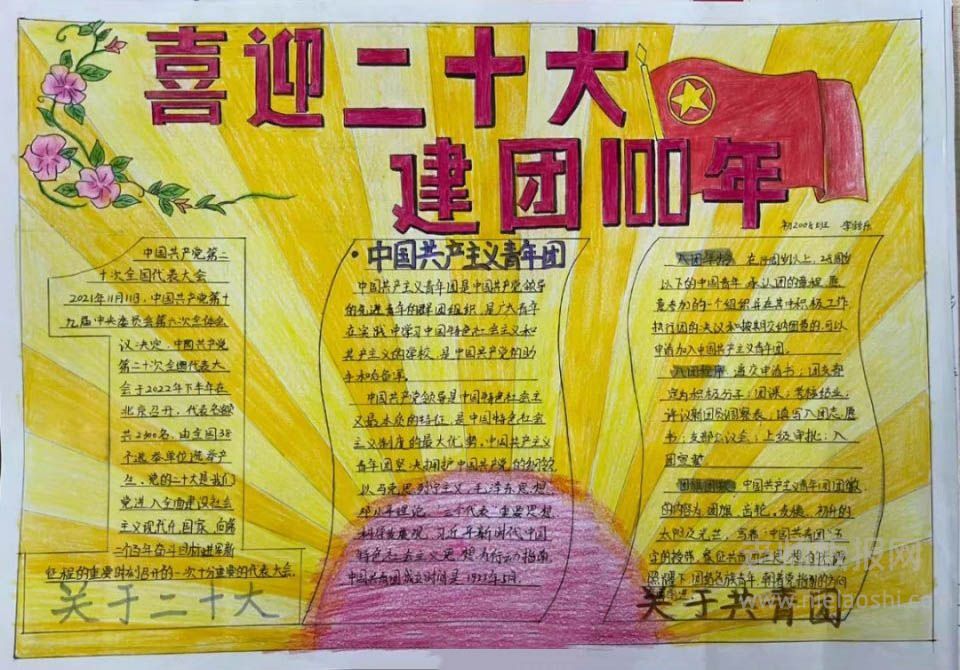 喜迎二十大
建团100年
中国共产党第二
十次全国代表大会
2021年11月11日，中国共产党第十
九届中央委员会第六次全体会
议决定，中国共产党
第二十次全国代表大
会于2022年下半年在
北京召开，代表名额
共2300名，由全国38
个选举单位选举产
生。党的二十大是我们
党进入全面建设社会
主义现代化国家，向第
二个百年奋斗目标进军新
征程的重要时刻召开的一次十分重要的代表大会。
关于二十大
·中国共产主义青年团
中国共产主义青年团是中国共产党领导
的先进青年的群团组织，是广大青年
在实践中学习中国特色社会主义和
共产主义的学校，是中国共产党的助
手和后备军。
中国共产党领导是中国特色社会主
义最本质的特征，是中国特色社会
主义制度的最大优势，中国共产主义
青年团坚决拥护中国共产党的纲领，
以马克思列宁主义、毛泽东思想、
邓小平理论、“三个代表”重要思想、
科学发展观、习近平新时代中国
特色社会主义思想为行动指南
中国共青团成立时间是1922年5月。
入团年龄 在14周岁以上，28周岁
以下的中国青年，承认团的章程，愿
意参加团的一个组织并在其中积极工作、
执行团的决议和按期交纳团费的，可以
申请加入中国共产主义青年团。
入团程序 递交申请书；团支部
定为积极分子；团课，考核结业；
填写入团志愿
书；支部大会；上级审批；入
团宣誓
团旗团徽 中国共产主义青年团团徽
的内容为团旗、齿轮、麦穗、初升的
太阳及光芒，写有“中国共青团”五
字的绶带。
关于共青团